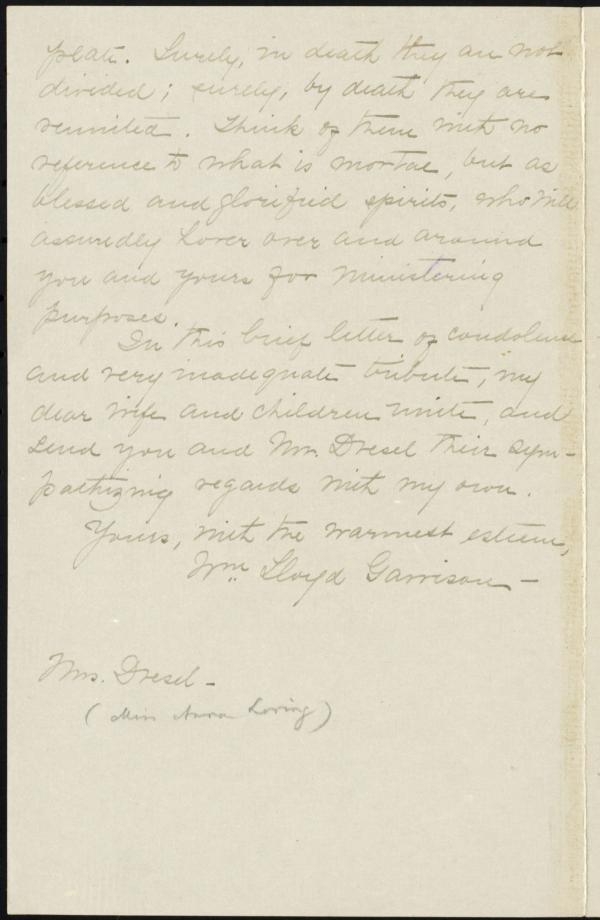 plate. Surely, in death they are not
divided; surely, by death they are
reunited. Think of them with no
reference to what is mortal, but as
blessed and glorified spirits, who will
assuredly hover over and around
you and yours for ministering
purposes.
In this brief letter of condolence
and very inadequate tribute, my
dear wife and children unite, and
send you and Mr. Dresel their sym-
pathizing regards with my own.
Yours, with the warmest esteem,
Wm. Lloyd Garrison—
Mrs. Dresel—
(Miss Anna Loring)